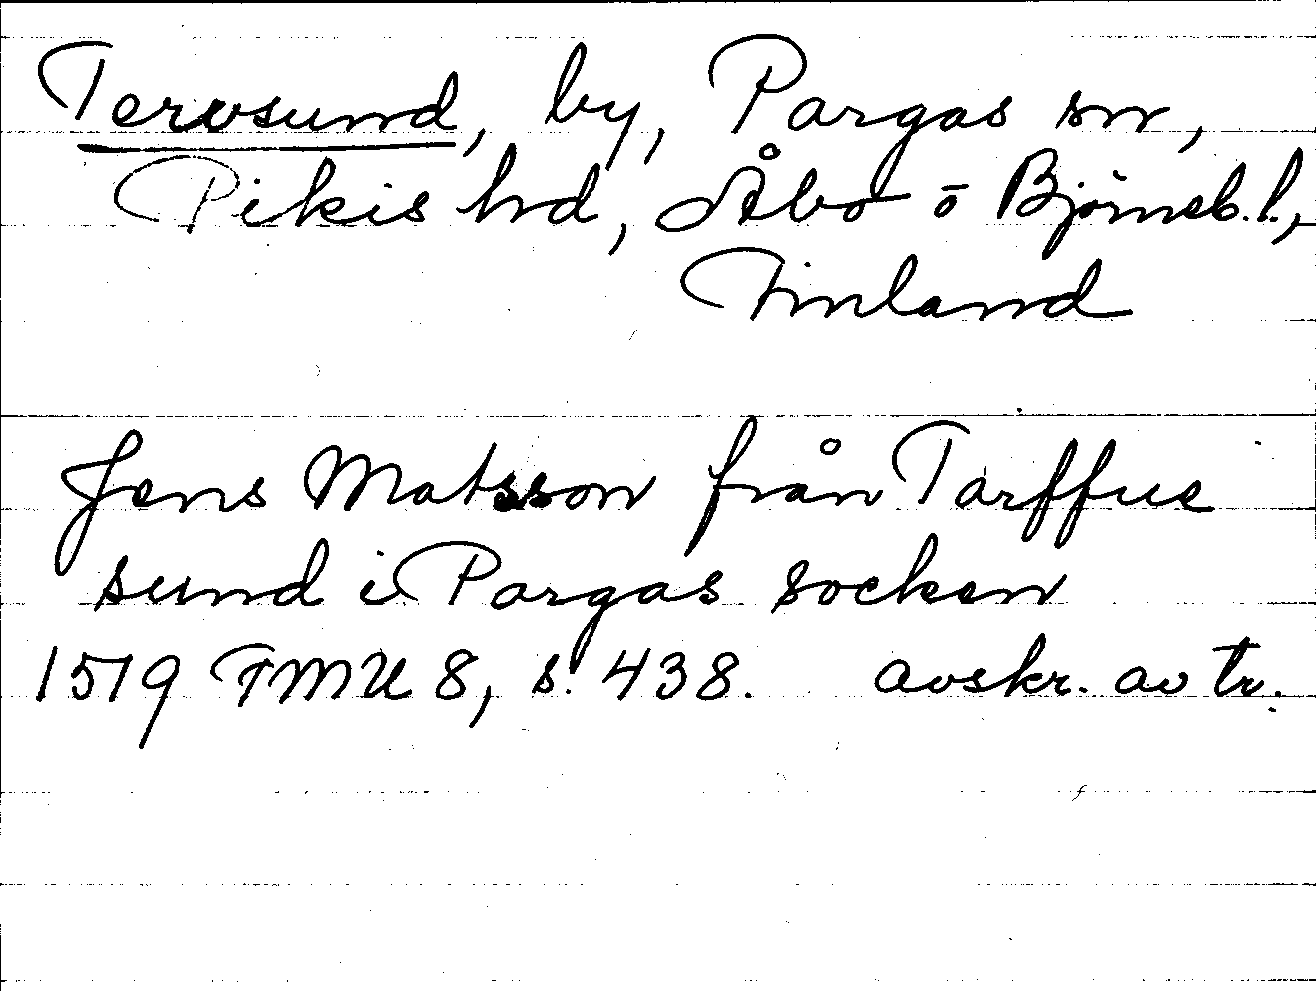 Tervsund, by, Pargas sn,
Pikis hd, Åbo o Björneb. l.,
Finland
Jens Matsson från Tarffue
sund i Pargas socken
1519 FMU 8, s. 438. avskr. av tr.